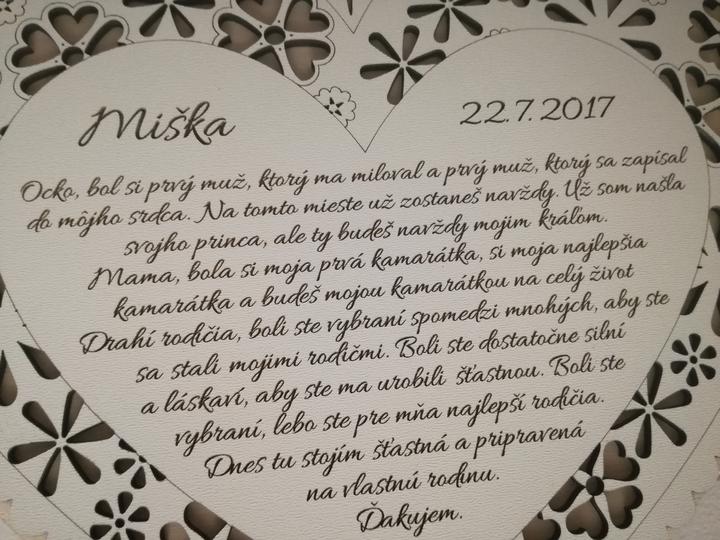 Miška
22.7.2017
Ocko, bol si prvý muž, ktorý ma miloval a prvý muž, ktorý sa zapísal
do môjho srdca. Na tomto mieste už zostaneš navždy. Už som našla
svojho princa, ale ty budeš navždy mojim kráľom.
Mama, bola si moja prvá kamarátka, si moja najlepšia
kamarátka a budeš mojou kamarátkou na celý život
Drahí rodičia, boli ste vybraní spomedzi mnohých, aby ste
sa stali mojimi rodičmi. Boli ste dostatočne silní
a láskaví, aby ste ma urobili šťastnou. Boli ste
vybraní, lebo ste pre mňa najlepší rodičia.
Dnes tu stojím šťastná a pripravená
na vlastnú rodinu.
Ďakujem.